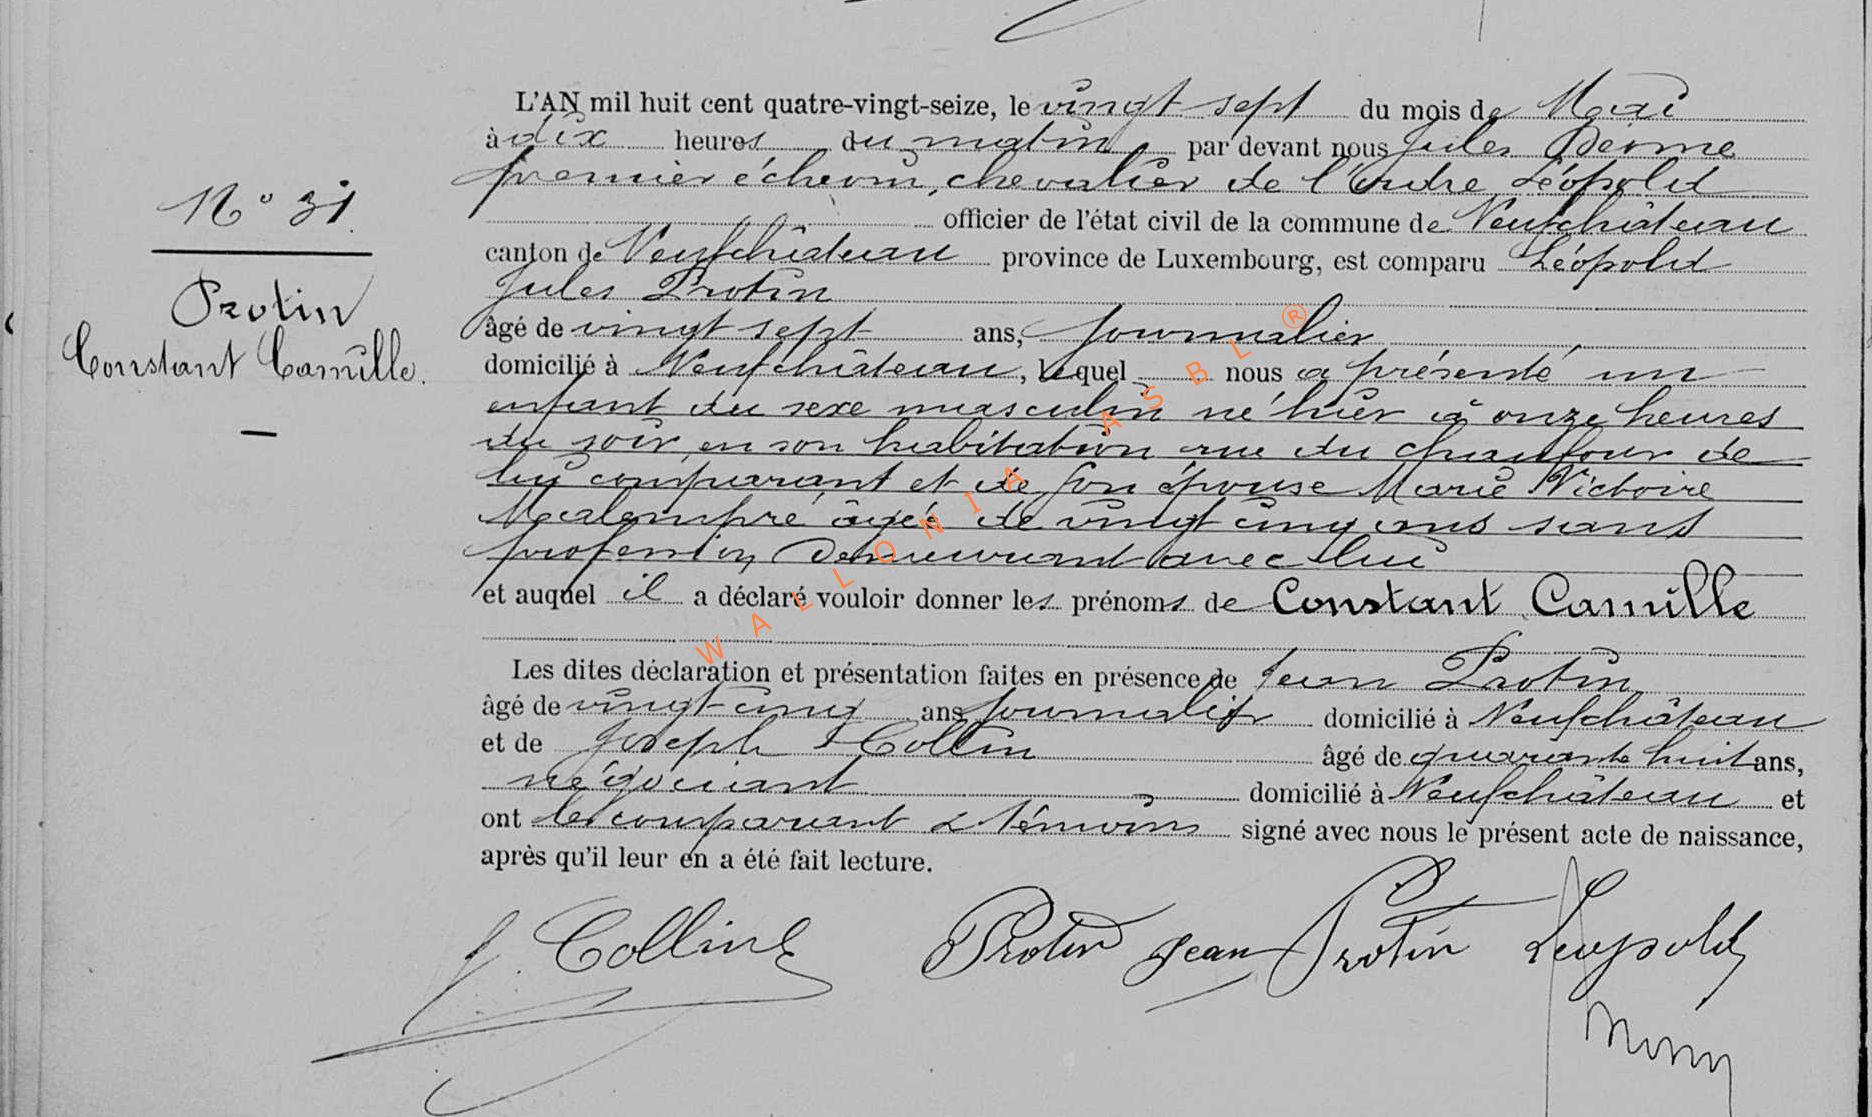 L'AN mil huit cent quatre-vingt-seize, le vingt sept du mois de Mai
à dix heures du matin par devant nous Jules
premier échevin, chevalier de l'ordre Léopold
officier de l'état civil de la commune de Neufchâteau
canton de Neufchâteau province de Luxembourg, est comparu Léopold
Jules Protin
âgé de vingt sept ans, journalier
domicilié à Neufchâteau, lequel nous a présenté un
enfant du sexe masculin né hier à onze heures
du soir, en son habitation rue du Chaufour de
lui comparant et de son épouse Marie Victoire
Malempré âgée de vingt cinq ans sans
profession demeurant avec lui
et auquel il a déclaré vouloir donner les prénoms de Constant Camille
Les dites déclaration et présentation faites en présence de Jean Protin
âgé de vingt-cinq ans journalier domicilié à Neufchâteau
et de Joseph Collin âgé de quarante huit ans,
négociant domicilié à Neufchâteau et
ont les comparant & témoins signé avec nous le présent acte de naissance,
après qu'il leur en a été fait lecture.
N° 31
Protin
Constant Camille.
J. Collin
Protin Jean Protin Léopold
WALLONIA ASBL ®